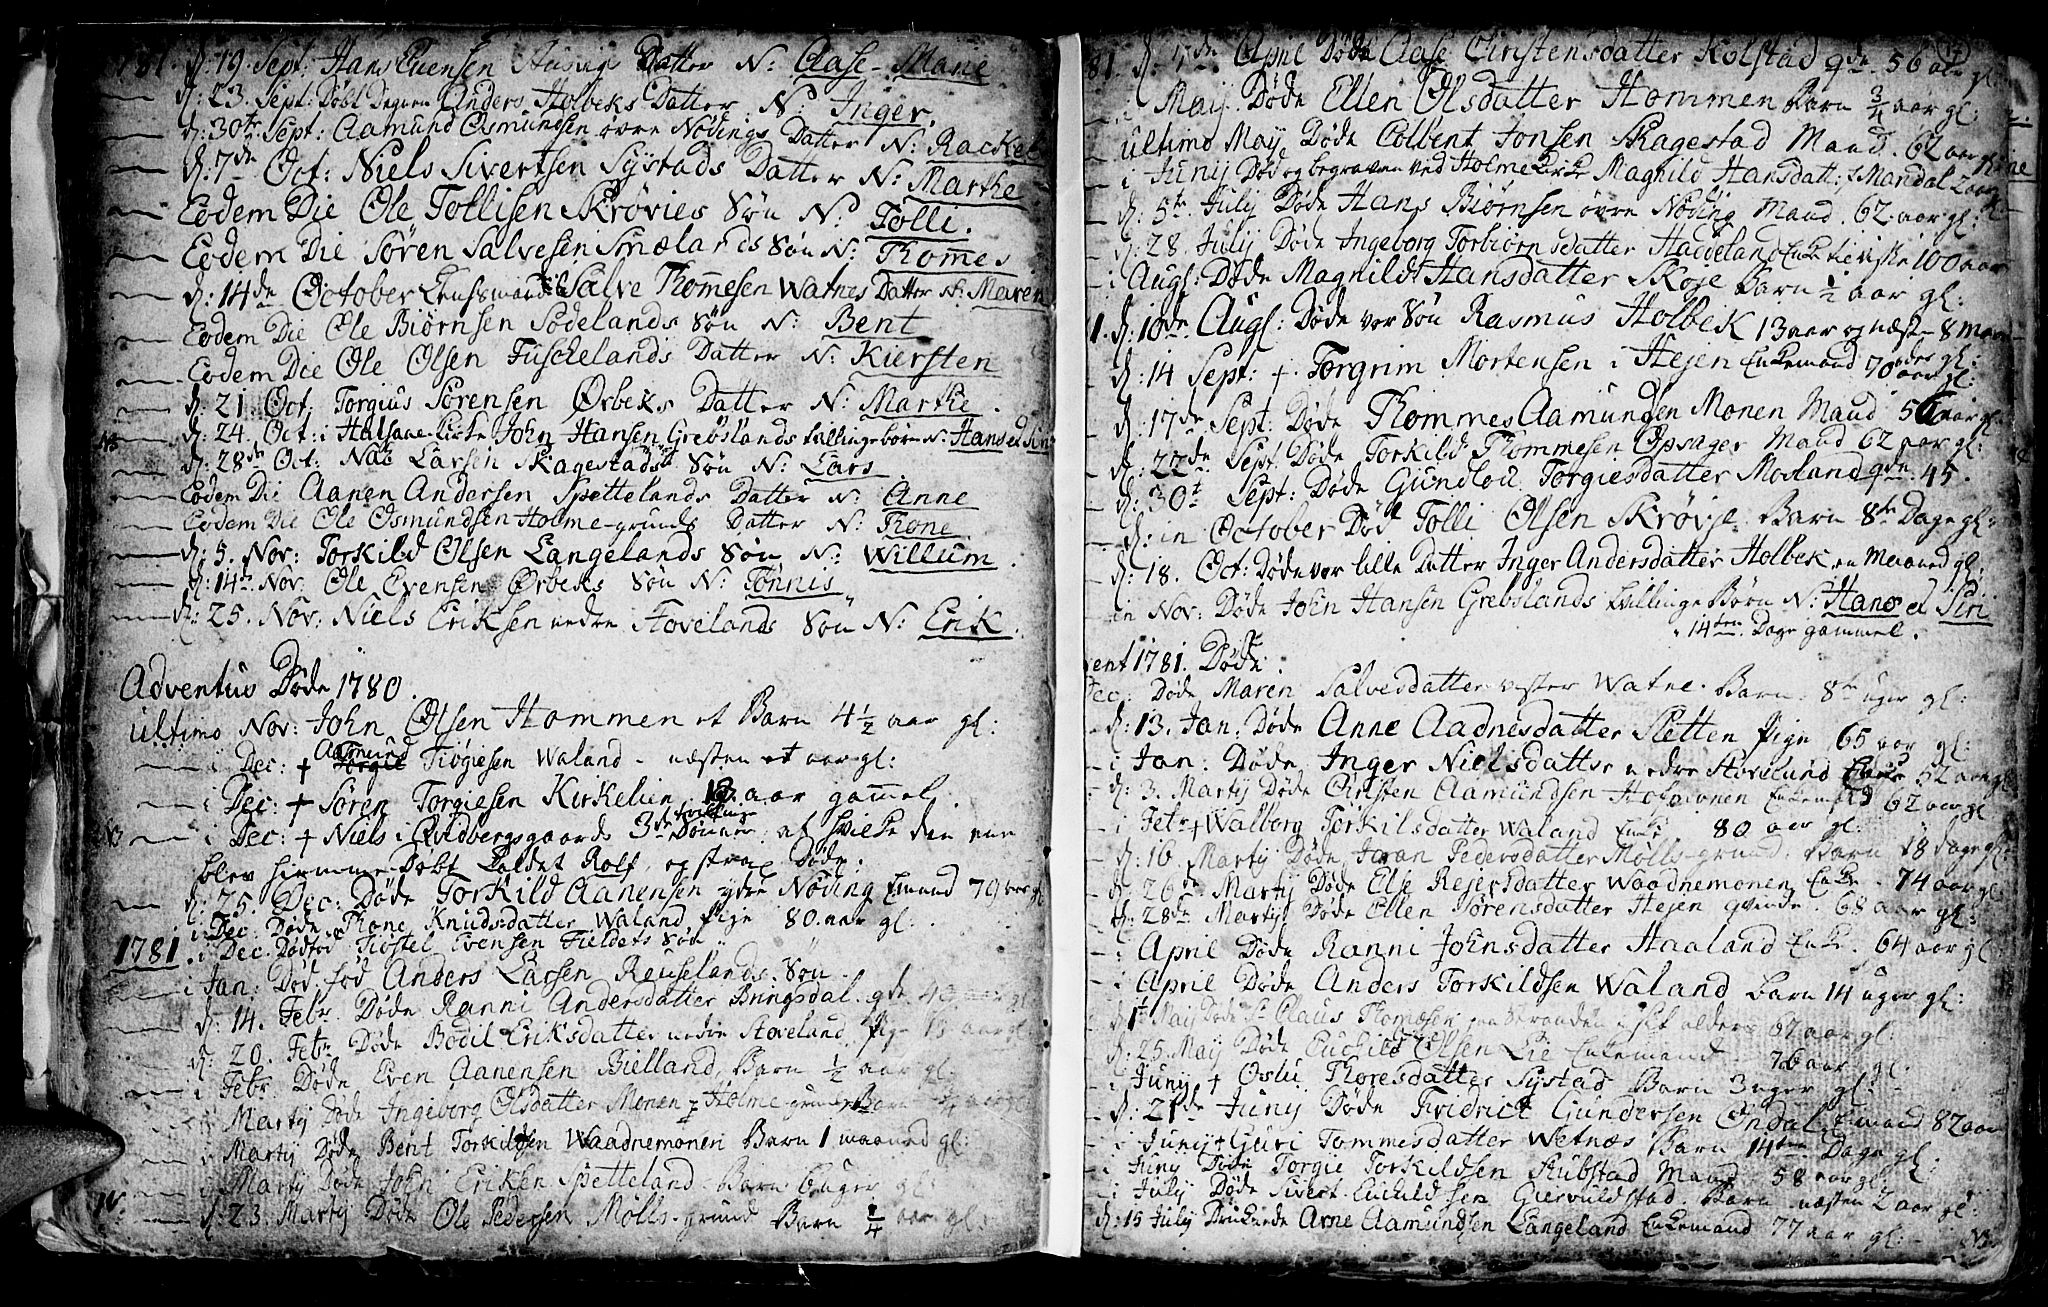 1781. d: 19. Sept: Hans Evensen Datter N: Aase-Marie
d: 23. Sept: Døbt Degnen Anders Holbeks Datter N: Inger.
d: 30te Sept: Aamund Osmundsen øvre Nødings Datter N: Rackel
d: 7de Oct: Niels Sivertsen Systads Datter N: Marthe
Eodem Die Ole Tollisen Skrøvies Søn N: Tolli.
Eodem Die Søren Salvesen Smælands Søn N: Thomes
d: 14de October Lensmand Salve Thomesen Watnes Datter N: Maren
Eodem Die Ole Biørnsen Sødelands Søn N: Bent
Eodem Die Ole Olsen Fuschelands Datter N: Kiersten
d: 21 Oct. Torgius Sørensen Ørbeks Datter N: Marthe.
NB d: 24. Oct: i Halsaae Kirke John Hansen Grebslands tvillingebørn N: Hans et Siri
d: 28de Oct: Nae Larsen Skagestads Søn N: Lars
Eodem Die Aanen Andersen Spettelands Datter N: Anne
Eodem Die Ole Osmundsen Holme-grunds Datter N: Tone
d: 5. Nov: Torkild Olsen Langelands Søn N: Willum.
d: 14de Nov. Ole Evensen Ørbeks Søn N: Tønnis
d: 25. Nov: Niels Eriksen nedre Stovelands Søn N: Erik.
Adventus Døde 1780.
ultimo Nov: John Olsen Hommen et Barn 4 1/2 aar gl:
i Dec: + Aamund Tiøgiesen Waland - næsten et aar gl:
i Dec: + Søren Torgiesen Kirkelien 13 aar gammel.
NB i Dec: + Niels i Qvidbergsgaards 3de Sønner af hvilke den ene
blev hiemme-døbt kaldet Rolf, og strax Døde.
d: 25. Dec: Døde Torkild Aanensen ydre Nøding Emand 79 aar gl
i Dec: Døde Tone Knudsdatter Waland Pige 80. aar gl:
1781. i Dec. Dødfød Tiøstel Evensen Fieldets Søn
i Jan: Død-fød Anders Larsen Reuselands Søn
d: 14. Febr. Døde Ranni Andersdatter Bringsdal. qde 40 aar gl
d: 20. Febr Døde Bodil Eriksdatter nedre Stoveland, Pige aar gl
i Febr Døde Even Aanensen Bielland, Barn 1/2 aar gl:
i Marty Døde Ingeborg Olsdatter Monen i Holme-grund Barn aar gl
i Marty Døde Bent Torkildsen Waadnemonen Barn 1 maaned gl:
i Marty Døde John Eriksen Spetteland. Barn. 6 uger gl:
d: 23. Marty Døde Ole Pedersen Mølls-grund Barn 1/4 aar gl:
81. d: 7de April Døde Aase Cirstensdatter Kolstad qde. 56 aar gl:
i May Døde Ellen Olsdatter Hommen Barn 3/4 aar gl:
ultimo May Døde Colbent Jonsen Skagestad Mand. 62 aar gl
i Juny Død og begraven ved Holme Kirke Magnild Hansdatt: f. Mandal 2 aar
d: 5te July Døde Hans Biørnsen øvre Nøding Mand. 62 aar gl:
d: 28. July Døde Ingeborg Torbiørnsdatter Haddeland Enke 100 aar
i Augl: Døde Magnildt Hansdatter Skøje Barn 1/2 aar gl:
81. d: 10de Augl: Døde vor Søn Rasmus Holbek 13 aar og næst 8 maaneder gl:
d: 14 Sept: + Torgrim Mortensen i Hejen Enkemand 70 aar gl:
d: 17de Sept: Døde Thommes Aamundsen Monen Mand 56 aar gl
d: 22de Sept: Døde Torkild Thommesen Opsager Mand 62 aar gl:
d: 30te Sept: Døde Gundlou Torgiesdatter Mosland qde 45.
d: in October Død Tolli Olsen Skrøvje Barn 8te Dage gl:
d: 18. Oct: Døde vor lille Datter Inger Andersdatter Holbek en Maaned gl:
in Nov: Døde John Hansen Grebslands tvillinge Børn N: Hans et Siri
14ten Dage gammel.
ent 1781. Døde.
Dec: Døde Maren Salvesdatter vester Watne. Barn. 8te uger gl:
d: 13. Jan: Døde Anne Aadnesdatter Sletten Pige 65 aar gl:
i Jan: Døde Inger Nielsdatter nedre Stoveland Enke 52 aar gl
d: 3. Marty Døde Cirsten Aamundsen Enkemand 62 aar gl
i Febr + Walborg Torkilsdatter Waland Enke 80 aar gl:
d: 16. Marty Døde Joran Pedersdatter Mølls-grund. Barn 18 dage gl:
d: 26de Marty Døde Else Rejersdatter Waadnemonen Enke. 74 aar gl:
d: 28de Marty Døde Ellen Sørensdatter Hejen qvinde. 68 aar gl:
i April Døde Ranni Johnsdatter Haaland Enke. 64 aar gl
i April Døde Anders Torkildsen Waland Barn 14 uger gl:
d: 1te May Døde Sr Claus Thomæsen paa Stranden i sit alders 62 aar gl:
d: 25. May Døde Euchild Olsen Lie Enkemand 76 aar gl:
i Juny + Oslu Thoresdatter Systad Barn 3 uger gl:
d: 21de Juny Døde Fridrick Gundersen Øndal Emand 82 aar
i Juny + Guri Tommesdatter Wetnæs Barn 14ten Dage gl:
i Juny Døde Torgie Torkildsen Stubstad Mand 58 aar gl:
i July Døde Sivert Euchildsen Giervuldstad. Barn næsten 2 aar gl:
d: 15 July Druknede Arne Aamundsen Langeland Enkemand 77 aar gl: NB